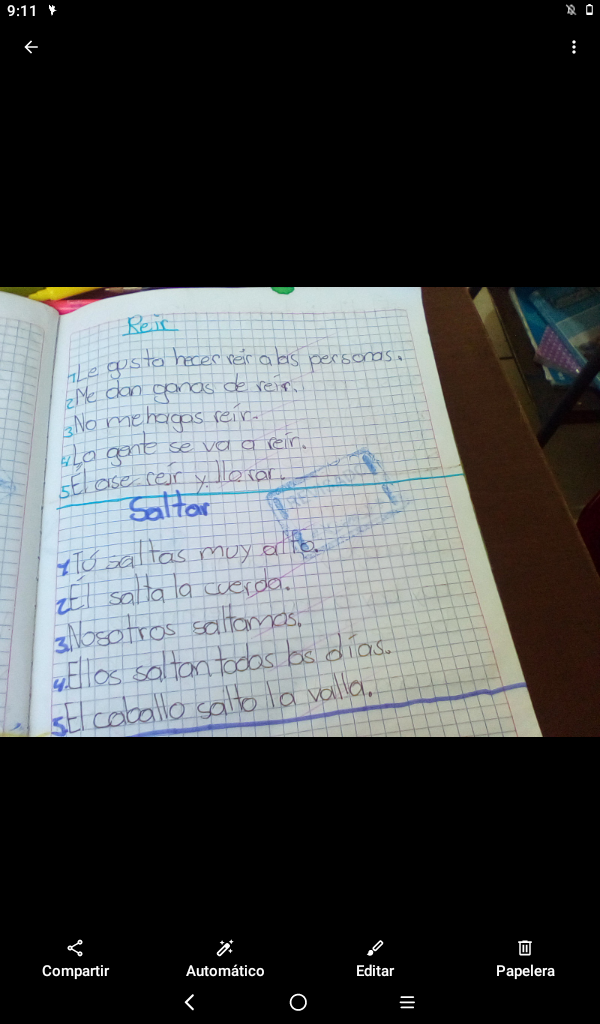 9:11
Reir
1 Le gusta hacer reír a las personas.
2 Me dan ganas de reir.
3 No me hagas reír.
4 La gente se va a reír.
5 Él ase reír y llorar.
Saltar
1 Tú saltas muy alto.
2 Él salta la cuerda.
3. Nosotros saltamos.
4. Ellos saltan todos los días.
5. El caballo salto la valla.
Compartir Automático Editar Papelera